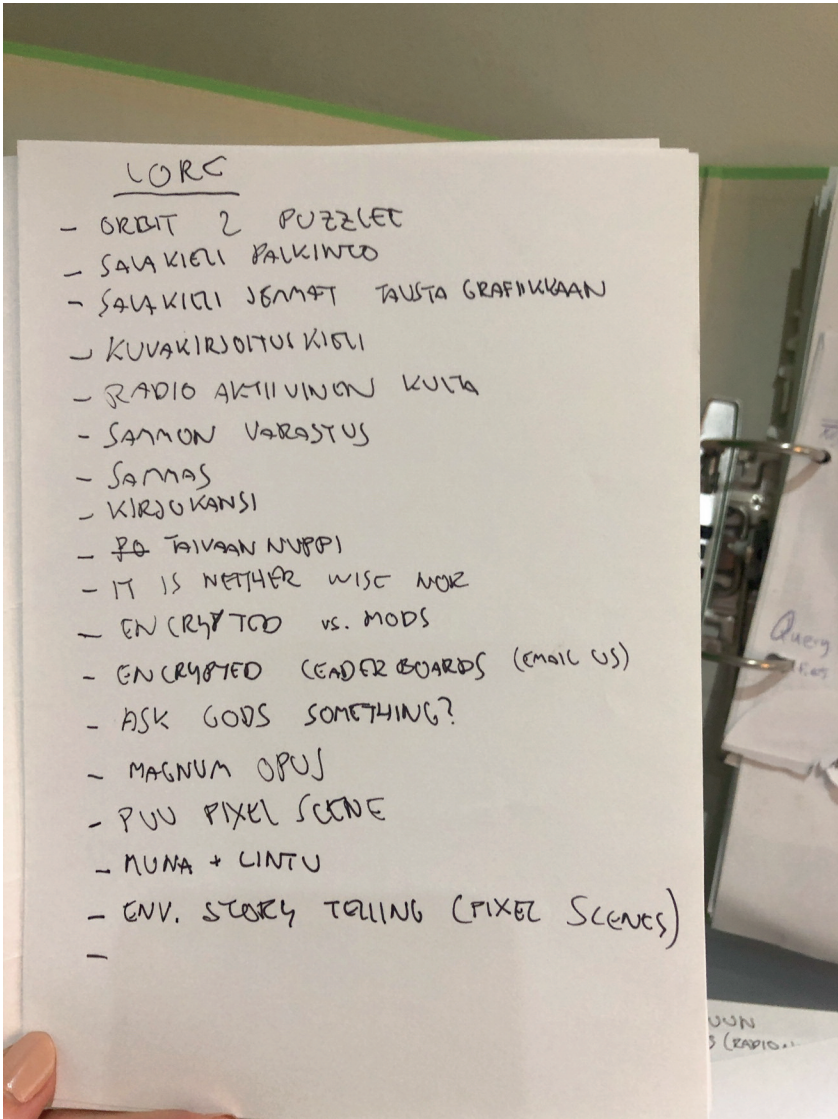 LORE
- ORBIT 2 PUZZLET
- SALAKIELI PALKINTO
- SALAKIELI JEMMAT TAUSTA GRAFIIKKAAN
- KUVAKIRJOITUS KIELI
- RADIO AKTIIVINEN KULTA
- SAMMON VARASTUS
- SAMMAS
- KIRJOKANSI
- TAIVAAN NUPPI
- IT IS NETHER WISE NOR
- ENCRYPTED vs. MODS
- ENCRYPTED LEADER BOARDS (EMAIL US)
- ASK GODS SOMETHING?
- MAGNUM OPUS
- PUU PIXEL SCENE
- MUNA + LINTU
- ENV. STORY TELLING (PIXEL SCENES)
-
Query
UUN
S (RADIO